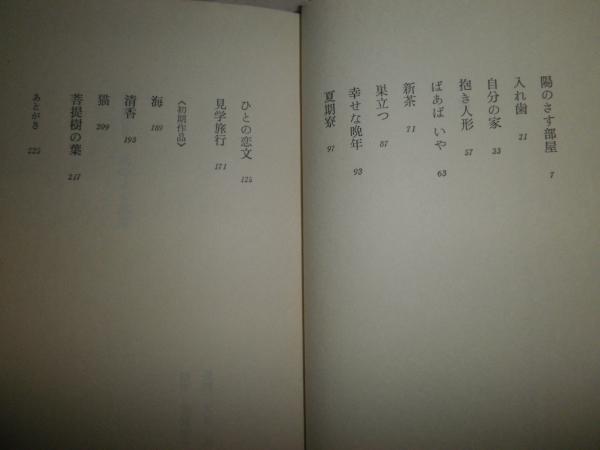 陽のさす部屋 7
入れ歯 21
自分の家 33
抱き人形 57
ばあば いや 63
新茶 71
巣立つ 87
幸せな晩年 93
夏期寮 97
ひとの恋文 125
見学旅行 171
《初期作品》
海 189
清香 193
猫 209
菩提樹の葉 217
あとがき 225